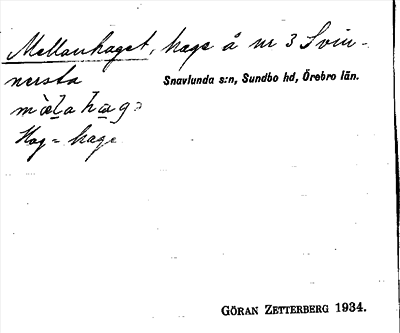 Mellanhaget, hage å nr 3 Svin-
nersta
Snavlunda s:n, Sundbo hd, Örebro län.
Hag = hage
GÖRAN ZETTERBERG 1934.